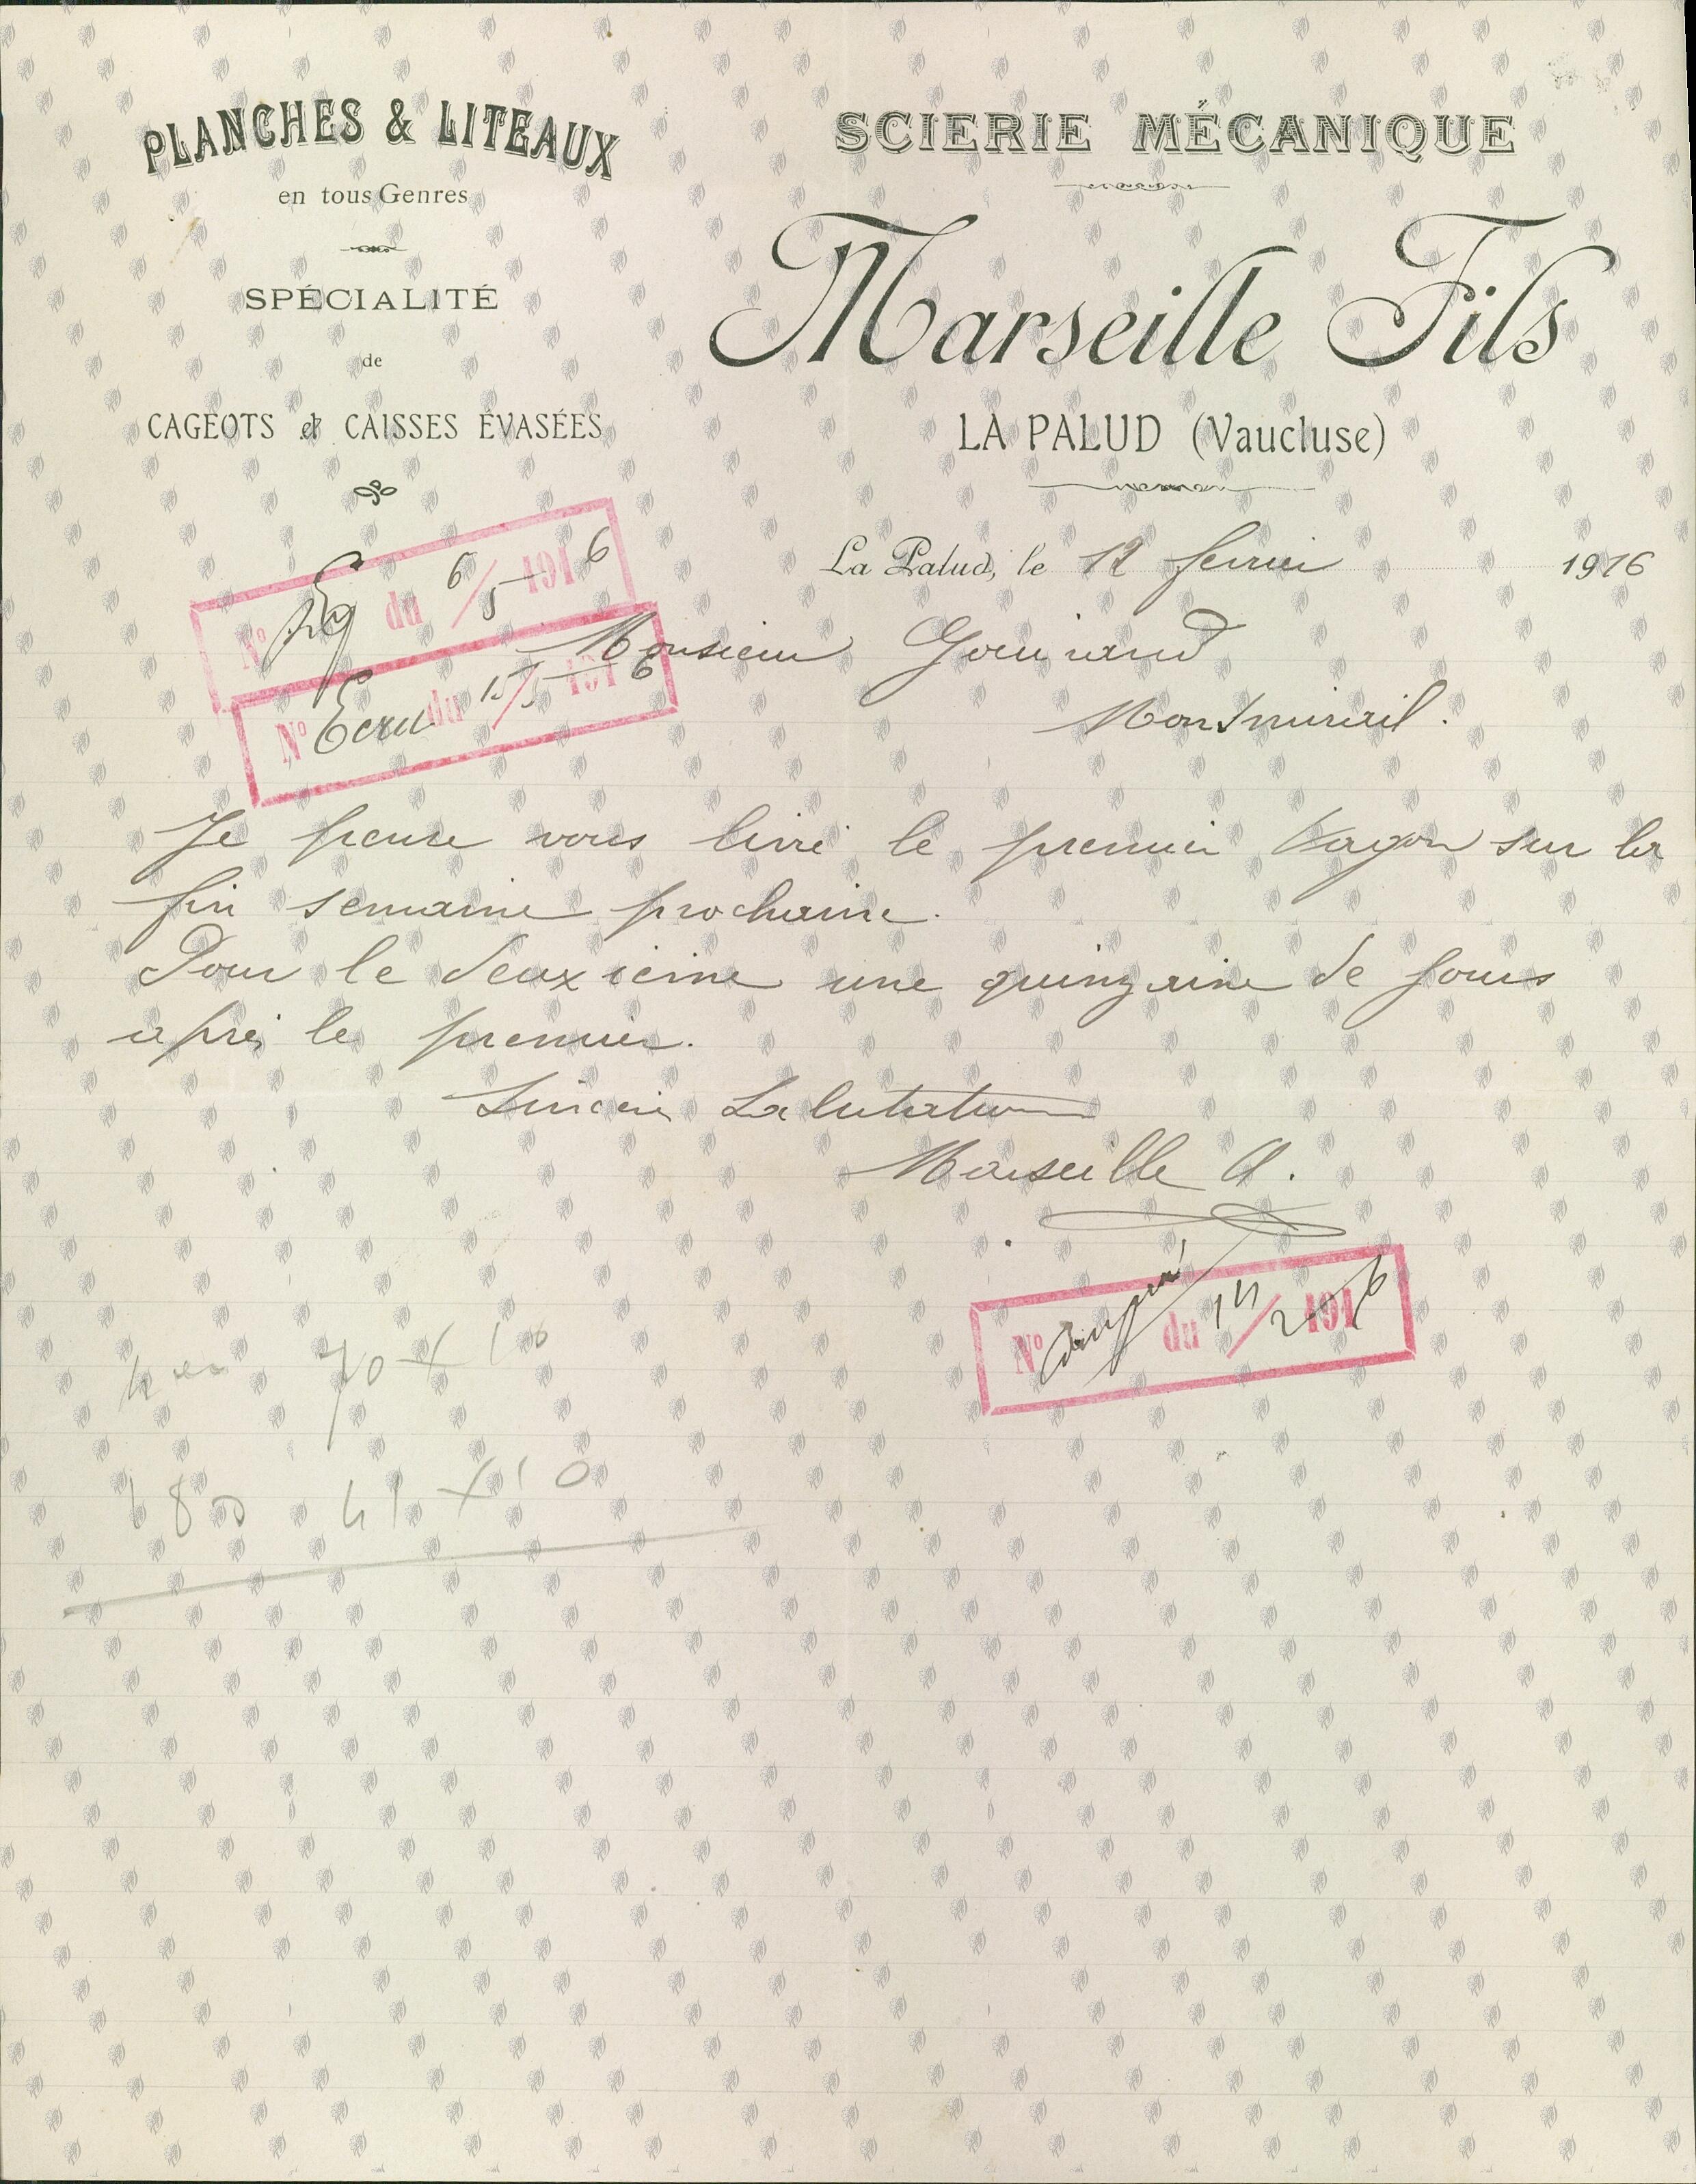 PLANCHES & LITEAUX
en tous Genres
SPÉCIALITÉ
de
CAGEOTS et CAISSES ÉVASÉES
SCIERIE MÉCANIQUE
Marseille Fils
LA PALUD (Vaucluse)
La Palud, le 12 fevrier 1916
N° du 6/5 1916
N° Ecru du 15/5 1916
Monsieur Gouirand
Montmirail.
Je pense vous livré le premier Vagon sur la
fin semaine prochaine.
Pour le deuxieme une quinzaine de jours
après le premier.
Sincère Salutation
Marseille A.
N° du 14/2 1916
70 x 10
1800 41 x 10